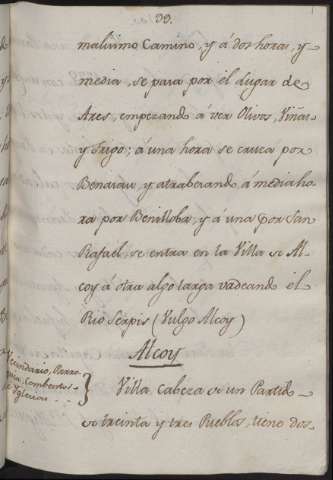 99.
malisimo Camino, y á dos horas, y
media, se pasa por el Lugar de
Ares, empezando á vér Olivos, Viñas
y Trigo; á una hora se cruza por
Benasau y atrabesando á media ho
ra por Benilloba, y á una por San
Rafaél, se entra en la Villa de Al
coy á otra algo larga vadeando él
Rio Serpis (Vulgo Alcoy)
Alcoy
Vecindario, Parro
quia, Combentos
é Yglecias
Villa Cabeza de un Partido
de treinta y tres Pueblos, tiene dos